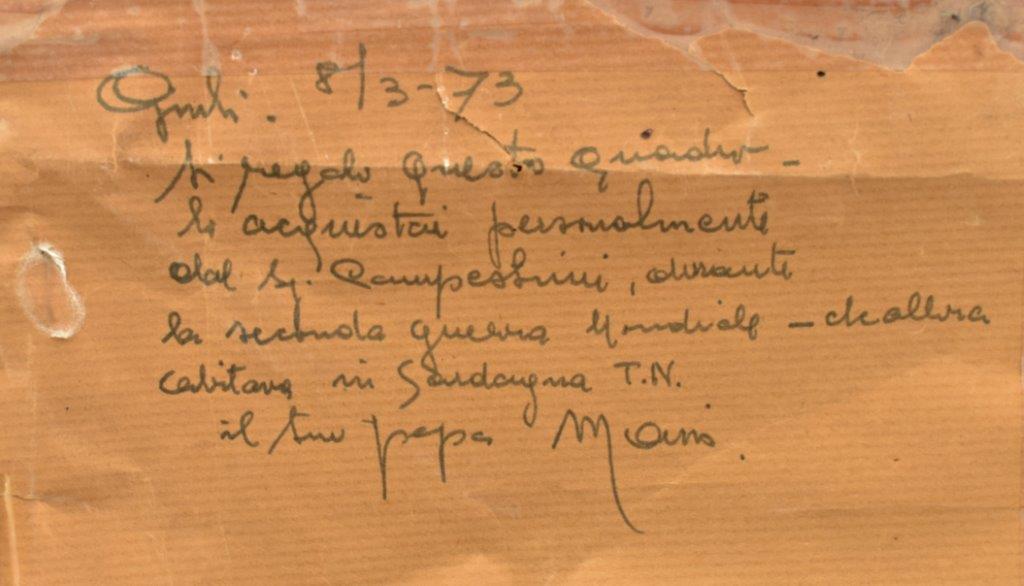 8/3-73
ti regalo questo quadro -
lo acquistai personalmente
dal Sg. Campestrini, durante
la seconda guerra Mondiale - che allora
abitava in Sardagna T.N.
il tuo papa Mario.